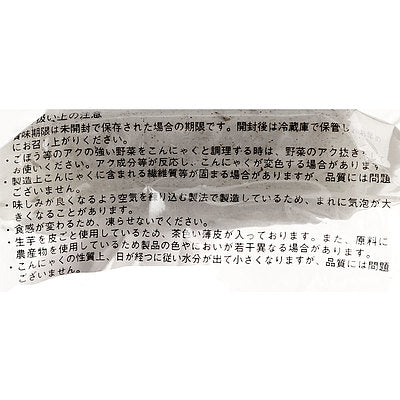 扱い上の注意
賞味期限は未開封で保存された場合の期限です。開封後は冷蔵庫で保管し
にお召し上がりください。
・ごぼう等のアクの強い野菜をこんにゃくと調理する時は、野菜のアク抜き
お使いください。アク成分等が反応し、こんにゃくが変色する場合があります
製造上こんにゃくに含まれる繊維質等が固まる場合がありますが、品質には問題
ございません。
・味しみが良くなるよう空気を練り込む製法で製造しているため、まれに気泡が大
きくなることがあります。
・食感が変わるため、凍らせないでください。
・生芋を皮ごと使用しているため、茶色い薄皮が入っております。また、原料に
農産物を使用しているため製品の色やにおいが若干異なる場合があります。
・こんにゃくの性質上、日が経つに従い水分が出て小さくなりますが、品質には問題
ございません。